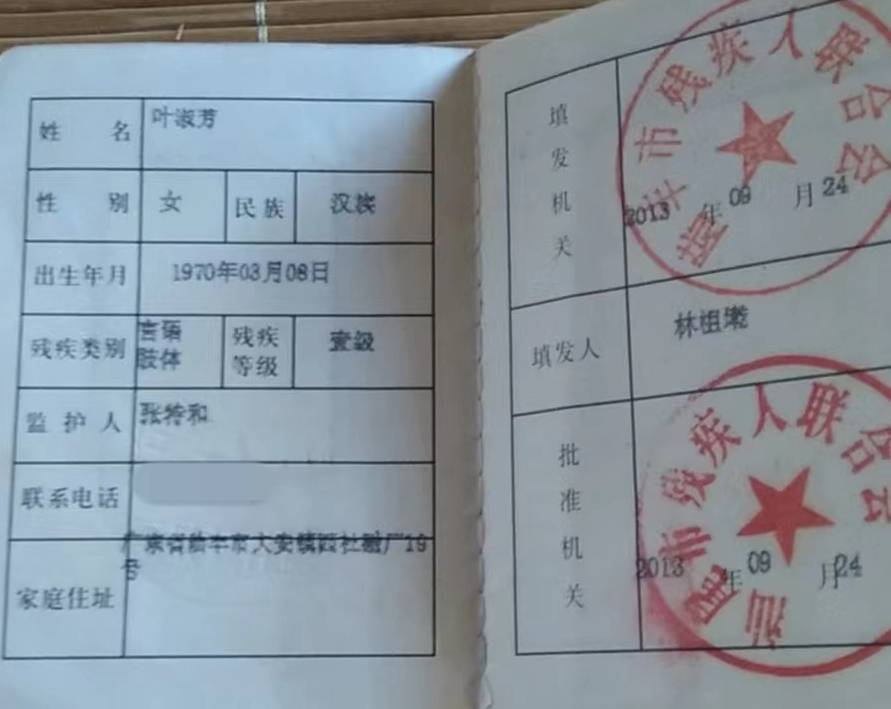 姓 名 叶淑芳
性 别 女 民族 汉族
出生年月 1970年03月08日
残疾类别 言语 肢体 残疾等级 壹级
监护人 张特和
联系电话
广东省陆丰市大安镇 19
号
家庭住址
市残疾人联合会
填发机关 2013年09月24
填发人 林祖
汕尾市残疾人联合会
批准机关 2013年09月24